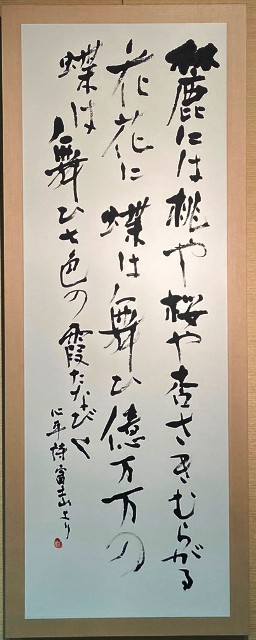 麓には桃や桜や杏さきむらがる
花花に蝶は舞ひ億万万の
蝶は舞ひ七色の霞たなびく
心平詩富士山より